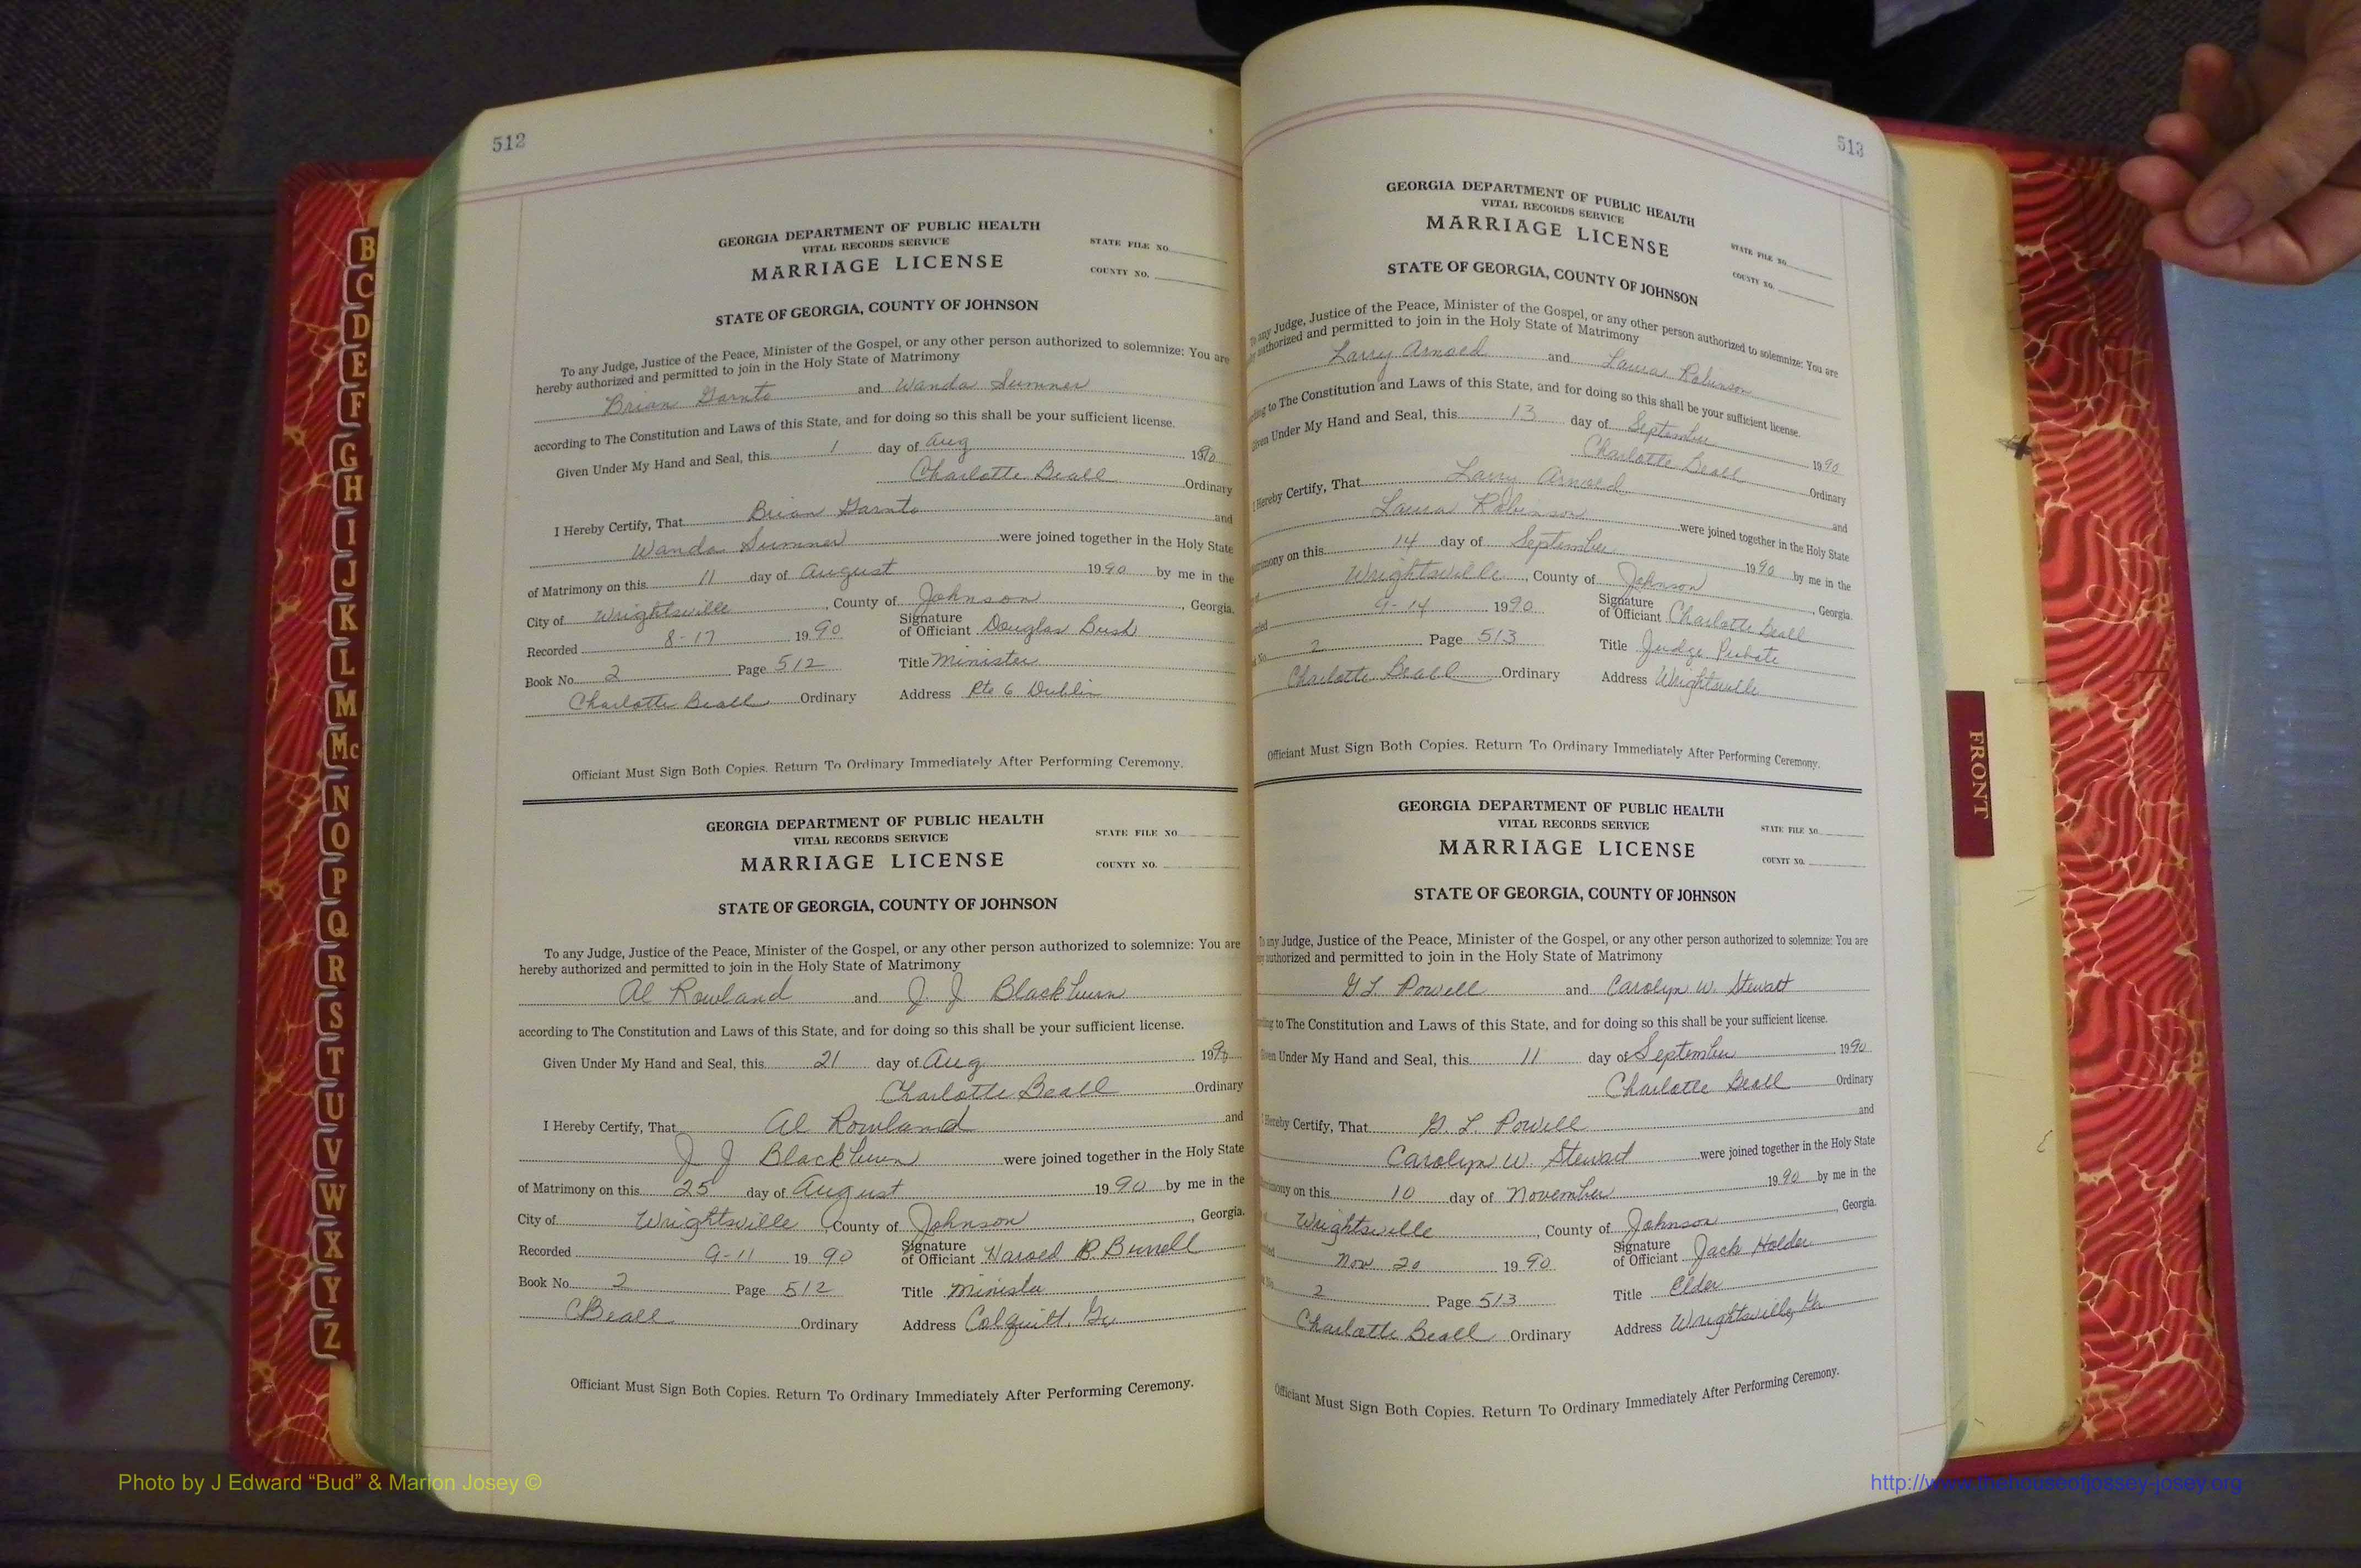 512
GEORGIA DEPARTMENT OF PUBLIC HEALTH
VITAL RECORDS SERVICE
MARRIAGE LICENSE
STATE FILE NO.
COUNTY NO.
STATE OF GEORGIA, COUNTY OF JOHNSON
To any Judge, Justice of the Peace, Minister of the Gospel, or any other person authorized to solemnize: You are
hereby authorized and permitted to join in the Holy State of Matrimony
Brian Garnto and Wanda Sumner
according to The Constitution and Laws of this State, and for doing so this shall be your sufficient license.
Given Under My Hand and Seal, this 1 day of Aug 1990
Charlotte Beall Ordinary
I Hereby Certify, That Brian Garnto and
Wanda Sumner were joined together in the Holy State
of Matrimony on this 11 day of August 1990 by me in the
City of Wrightsville, County of Johnson, Georgia.
Recorded 8-17 1990 Signature of Officiant Douglas Bush
Book No. 2 Page 512 Title Minister
Charlotte Beall Ordinary Address Rte 6 Dublin
Officiant Must Sign Both Copies. Return To Ordinary Immediately After Performing Ceremony.
GEORGIA DEPARTMENT OF PUBLIC HEALTH
VITAL RECORDS SERVICE
MARRIAGE LICENSE
STATE FILE NO.
COUNTY NO.
STATE OF GEORGIA, COUNTY OF JOHNSON
To any Judge, Justice of the Peace, Minister of the Gospel, or any other person authorized to solemnize: You are
hereby authorized and permitted to join in the Holy State of Matrimony
Al Rowland and J. J Blackburn
according to The Constitution and Laws of this State, and for doing so this shall be your sufficient license.
Given Under My Hand and Seal, this 21 day of Aug 1990
Charlotte Beall Ordinary
I Hereby Certify, That Al Rowland and
J J Blackburn were joined together in the Holy State
of Matrimony on this 25 day of August 1990 by me in the
City of Wrightsville, County of Johnson, Georgia.
Recorded 9-11 1990 Signature of Officiant Harold R. Burrell
Book No. 2 Page 512 Title Minister
CBeall Ordinary Address Colquitt, Ga
Officiant Must Sign Both Copies. Return To Ordinary Immediately After Performing Ceremony.
513
GEORGIA DEPARTMENT OF PUBLIC HEALTH
VITAL RECORDS SERVICE
MARRIAGE LICENSE
STATE FILE NO.
COUNTY NO.
STATE OF GEORGIA, COUNTY OF JOHNSON
To any Judge, Justice of the Peace, Minister of the Gospel, or any other person authorized to solemnize: You are
authorized and permitted to join in the Holy State of Matrimony
Larry Arnold and Laura Robinson
to The Constitution and Laws of this State, and for doing so this shall be your sufficient license.
Given Under My Hand and Seal, this 13 day of September 1990
Charlotte Beall Ordinary
I Hereby Certify, That Larry Arnold and
Laura Robinson were joined together in the Holy State
on this 14 day of September 1990 by me in the
Wrightsville, County of Johnson, Georgia.
9-14 1990 Signature of Officiant Charlotte Beall
2 Page 513 Title Judge Probate
Charlotte Beall Ordinary Address Wrightsville
Officiant Must Sign Both Copies. Return To Ordinary Immediately After Performing Ceremony.
GEORGIA DEPARTMENT OF PUBLIC HEALTH
VITAL RECORDS SERVICE
MARRIAGE LICENSE
STATE FILE NO.
COUNTY NO.
STATE OF GEORGIA, COUNTY OF JOHNSON
To any Judge, Justice of the Peace, Minister of the Gospel, or any other person authorized to solemnize: You are
authorized and permitted to join in the Holy State of Matrimony
G L Powell and Carolyn W. Stewart
to The Constitution and Laws of this State, and for doing so this shall be your sufficient license.
Given Under My Hand and Seal, this 11 day of September 1990
Charlotte Beall Ordinary
I Hereby Certify, That G. L Powell and
Carolyn W. Stewart were joined together in the Holy State
on this 10 day of November 1990 by me in the
Wrightsville, County of Johnson, Georgia.
Nov 20 1990 Signature of Officiant Jack Holder
2 Page 513 Title Elder
Charlotte Beall Ordinary Address Wrightsville, Ga
Officiant Must Sign Both Copies. Return To Ordinary Immediately After Performing Ceremony.
B
C
D
E
F
G
H
I
J
K
L
M
Mc
N
O
P
Q
R
S
T
U
V
W
X
Y
Z
FRONT
Photo by J Edward “Bud” & Marion Josey ©
http://www.thehouseofjossey-josey.org